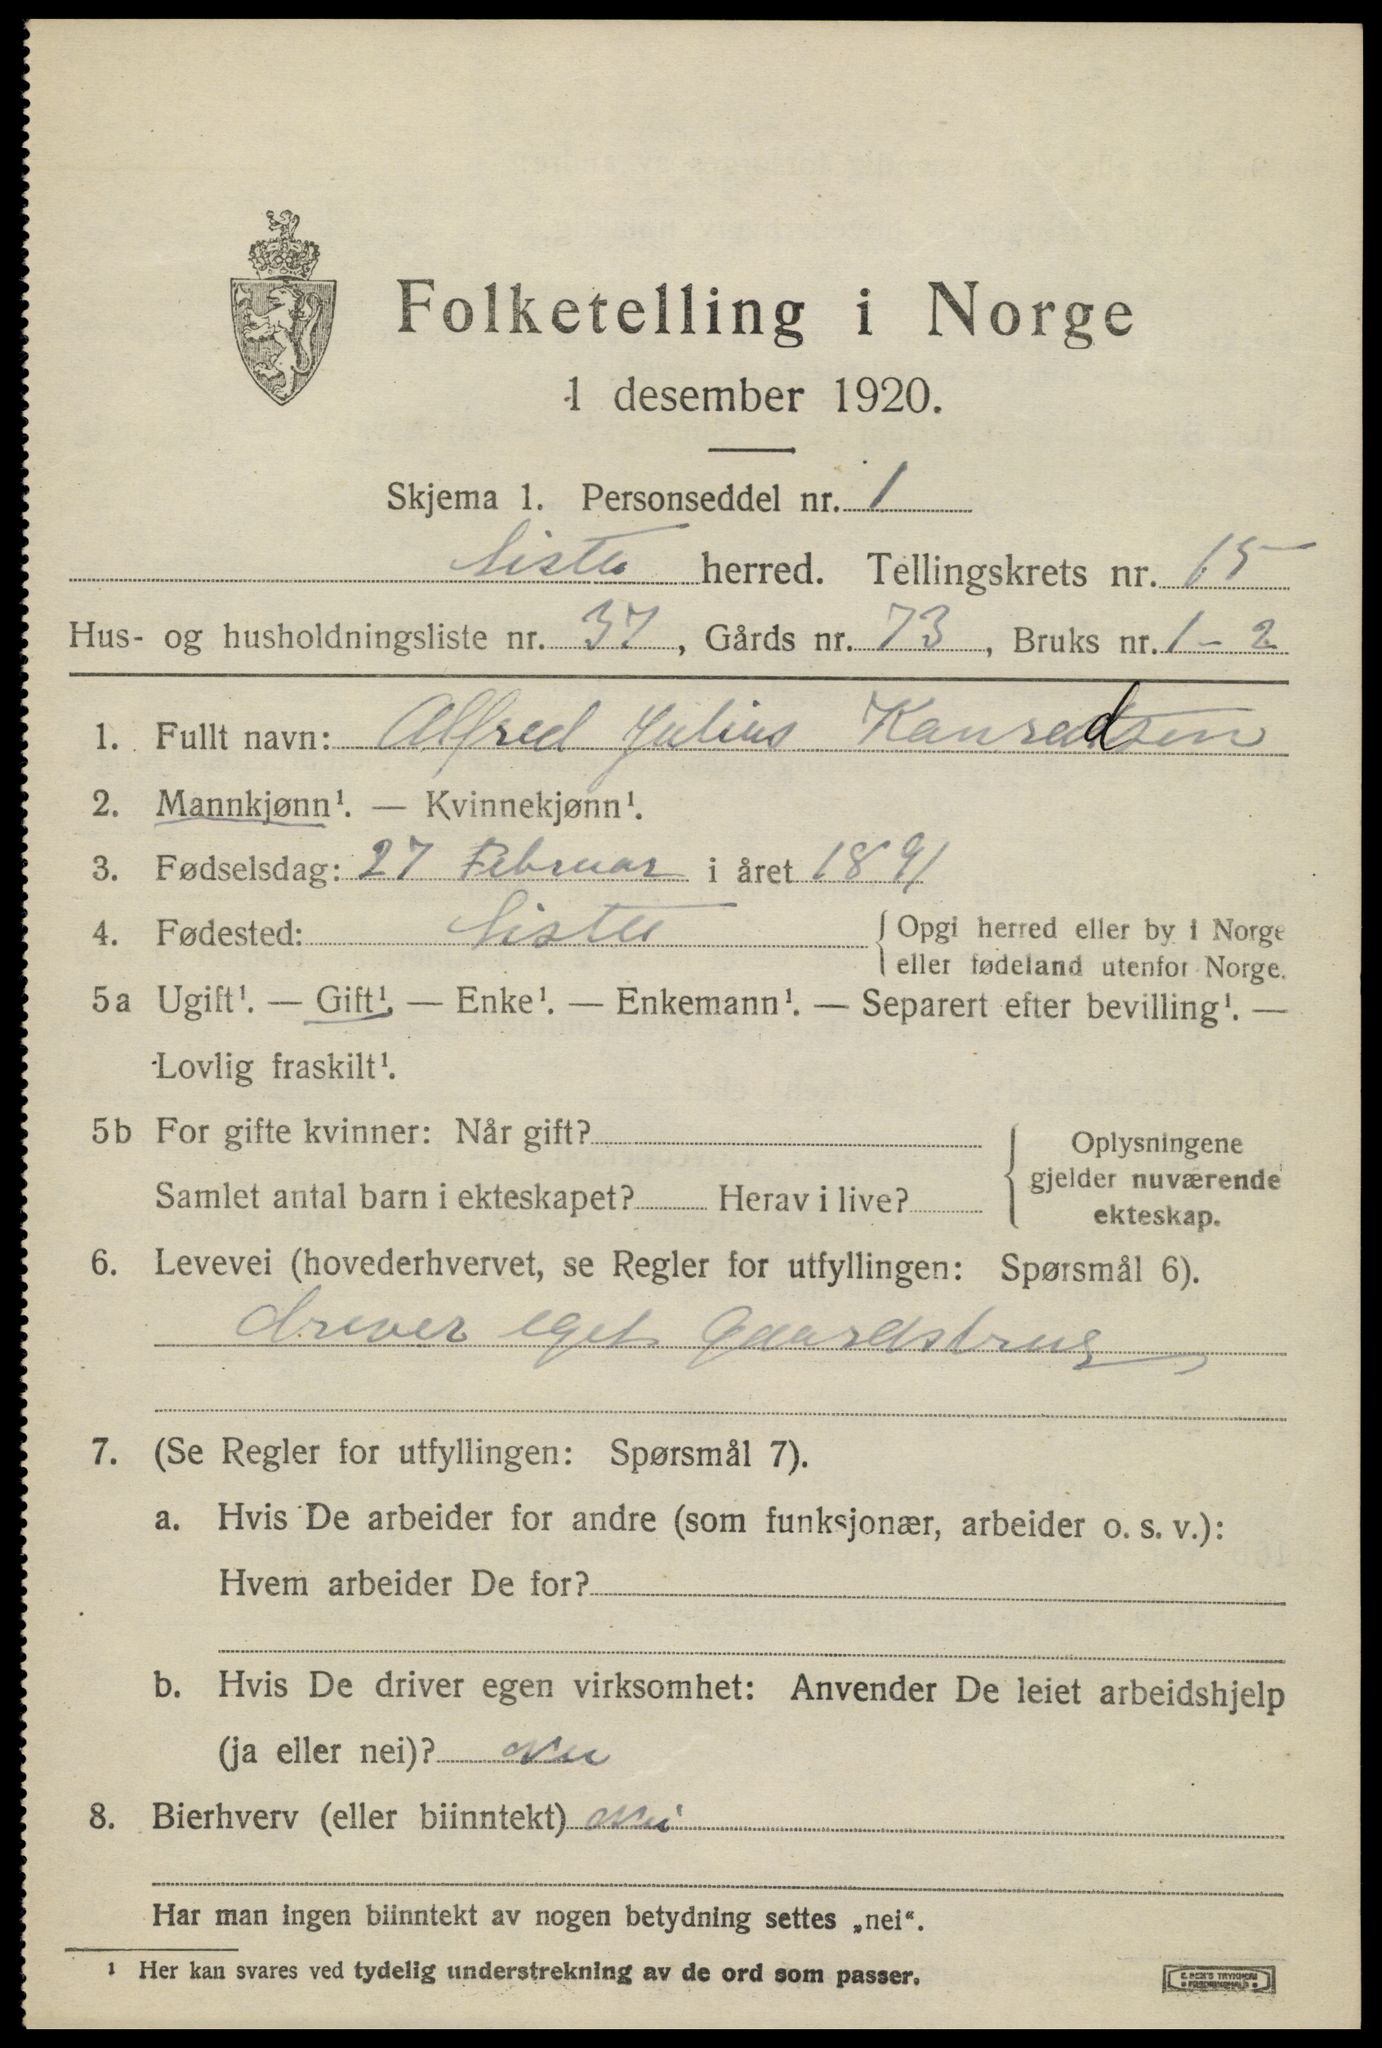 Folketelling i Norge
1 desember 1920.
Skjema 1. Personseddel nr. 1
Lista herred. Tellingskrets nr. 15
Hus- og husholdningsliste nr. 37, Gårds nr. 73, Bruks nr. 1-2
1. Fullt navn: Alfred Julius Konradsen
2. Mannkjønn¹. — Kvinnekjønn¹.
3. Fødselsdag: 27 Februar i året 1891
4. Fødested: Lista { Opgi herred eller by i Norge
eller fødeland utenfor Norge.
5a Ugift¹. — Gift¹. — Enke¹. — Enkemann¹. — Separert efter bevilling¹. —
Lovlig fraskilt¹.
5b For gifte kvinner: Når gift?
Samlet antal barn i ekteskapet? Herav i live?
Oplysningene
gjelder nuværende
ekteskap.
6. Levevei (hovederhvervet, se Regler for utfyllingen: Spørsmål 6).
driver eget Gaardsbrug
7. (Se Regler for utfyllingen: Spørsmål 7).
a. Hvis De arbeider for andre (som funksjonær, arbeider o. s. v.):
Hvem arbeider De for?
b. Hvis De driver egen virksomhet: Anvender De leiet arbeidshjelp
(ja eller nei)? nei
8. Bierhverv (eller biinntekt) nei
Har man ingen biinntekt av nogen betydning settes „nei".
¹ Her kan svares ved tydelig understrekning av de ord som passer.